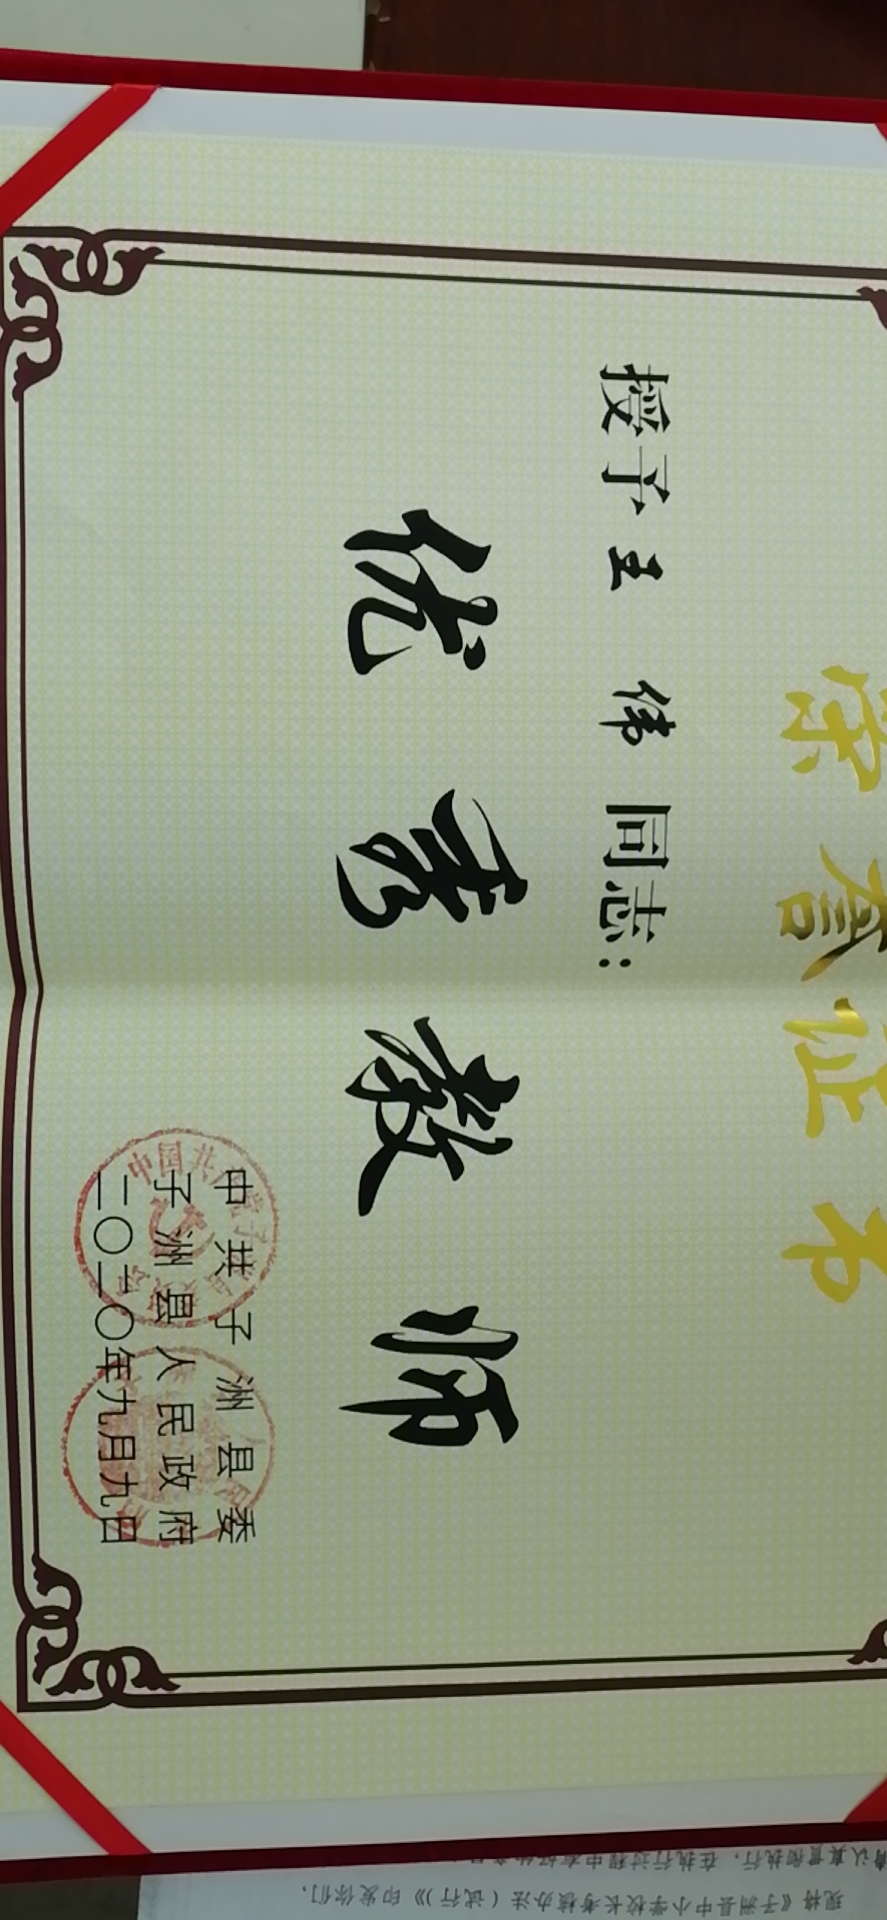 荣誉证书
授予王 伟同志：
优秀教师
中共子洲县委
子洲县人民政府
二〇二〇年九月九日
现将《子洲县中小学校长考核办法（试行）》印发你们，
真认真贯彻执行，在执行过程中有